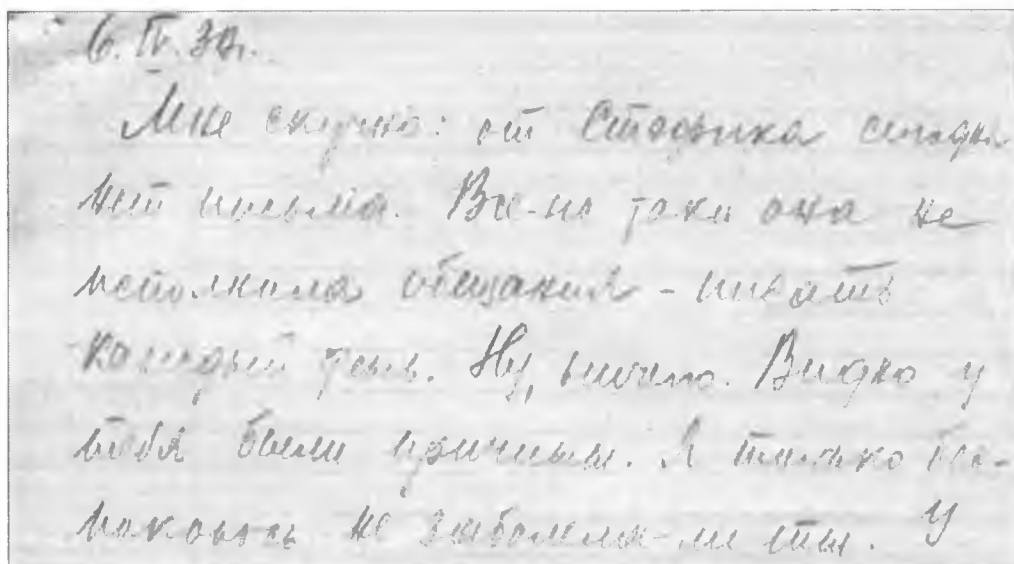 6. IV. 30.
Мне скучно: от Стафика сегодня
нет письма. Все-но таки она не
исполнила обещания - писать
каждый день. Ну, ничего. Видно у
тебя были причины. Я только бес-
покоюсь не заболела-ли ты. У